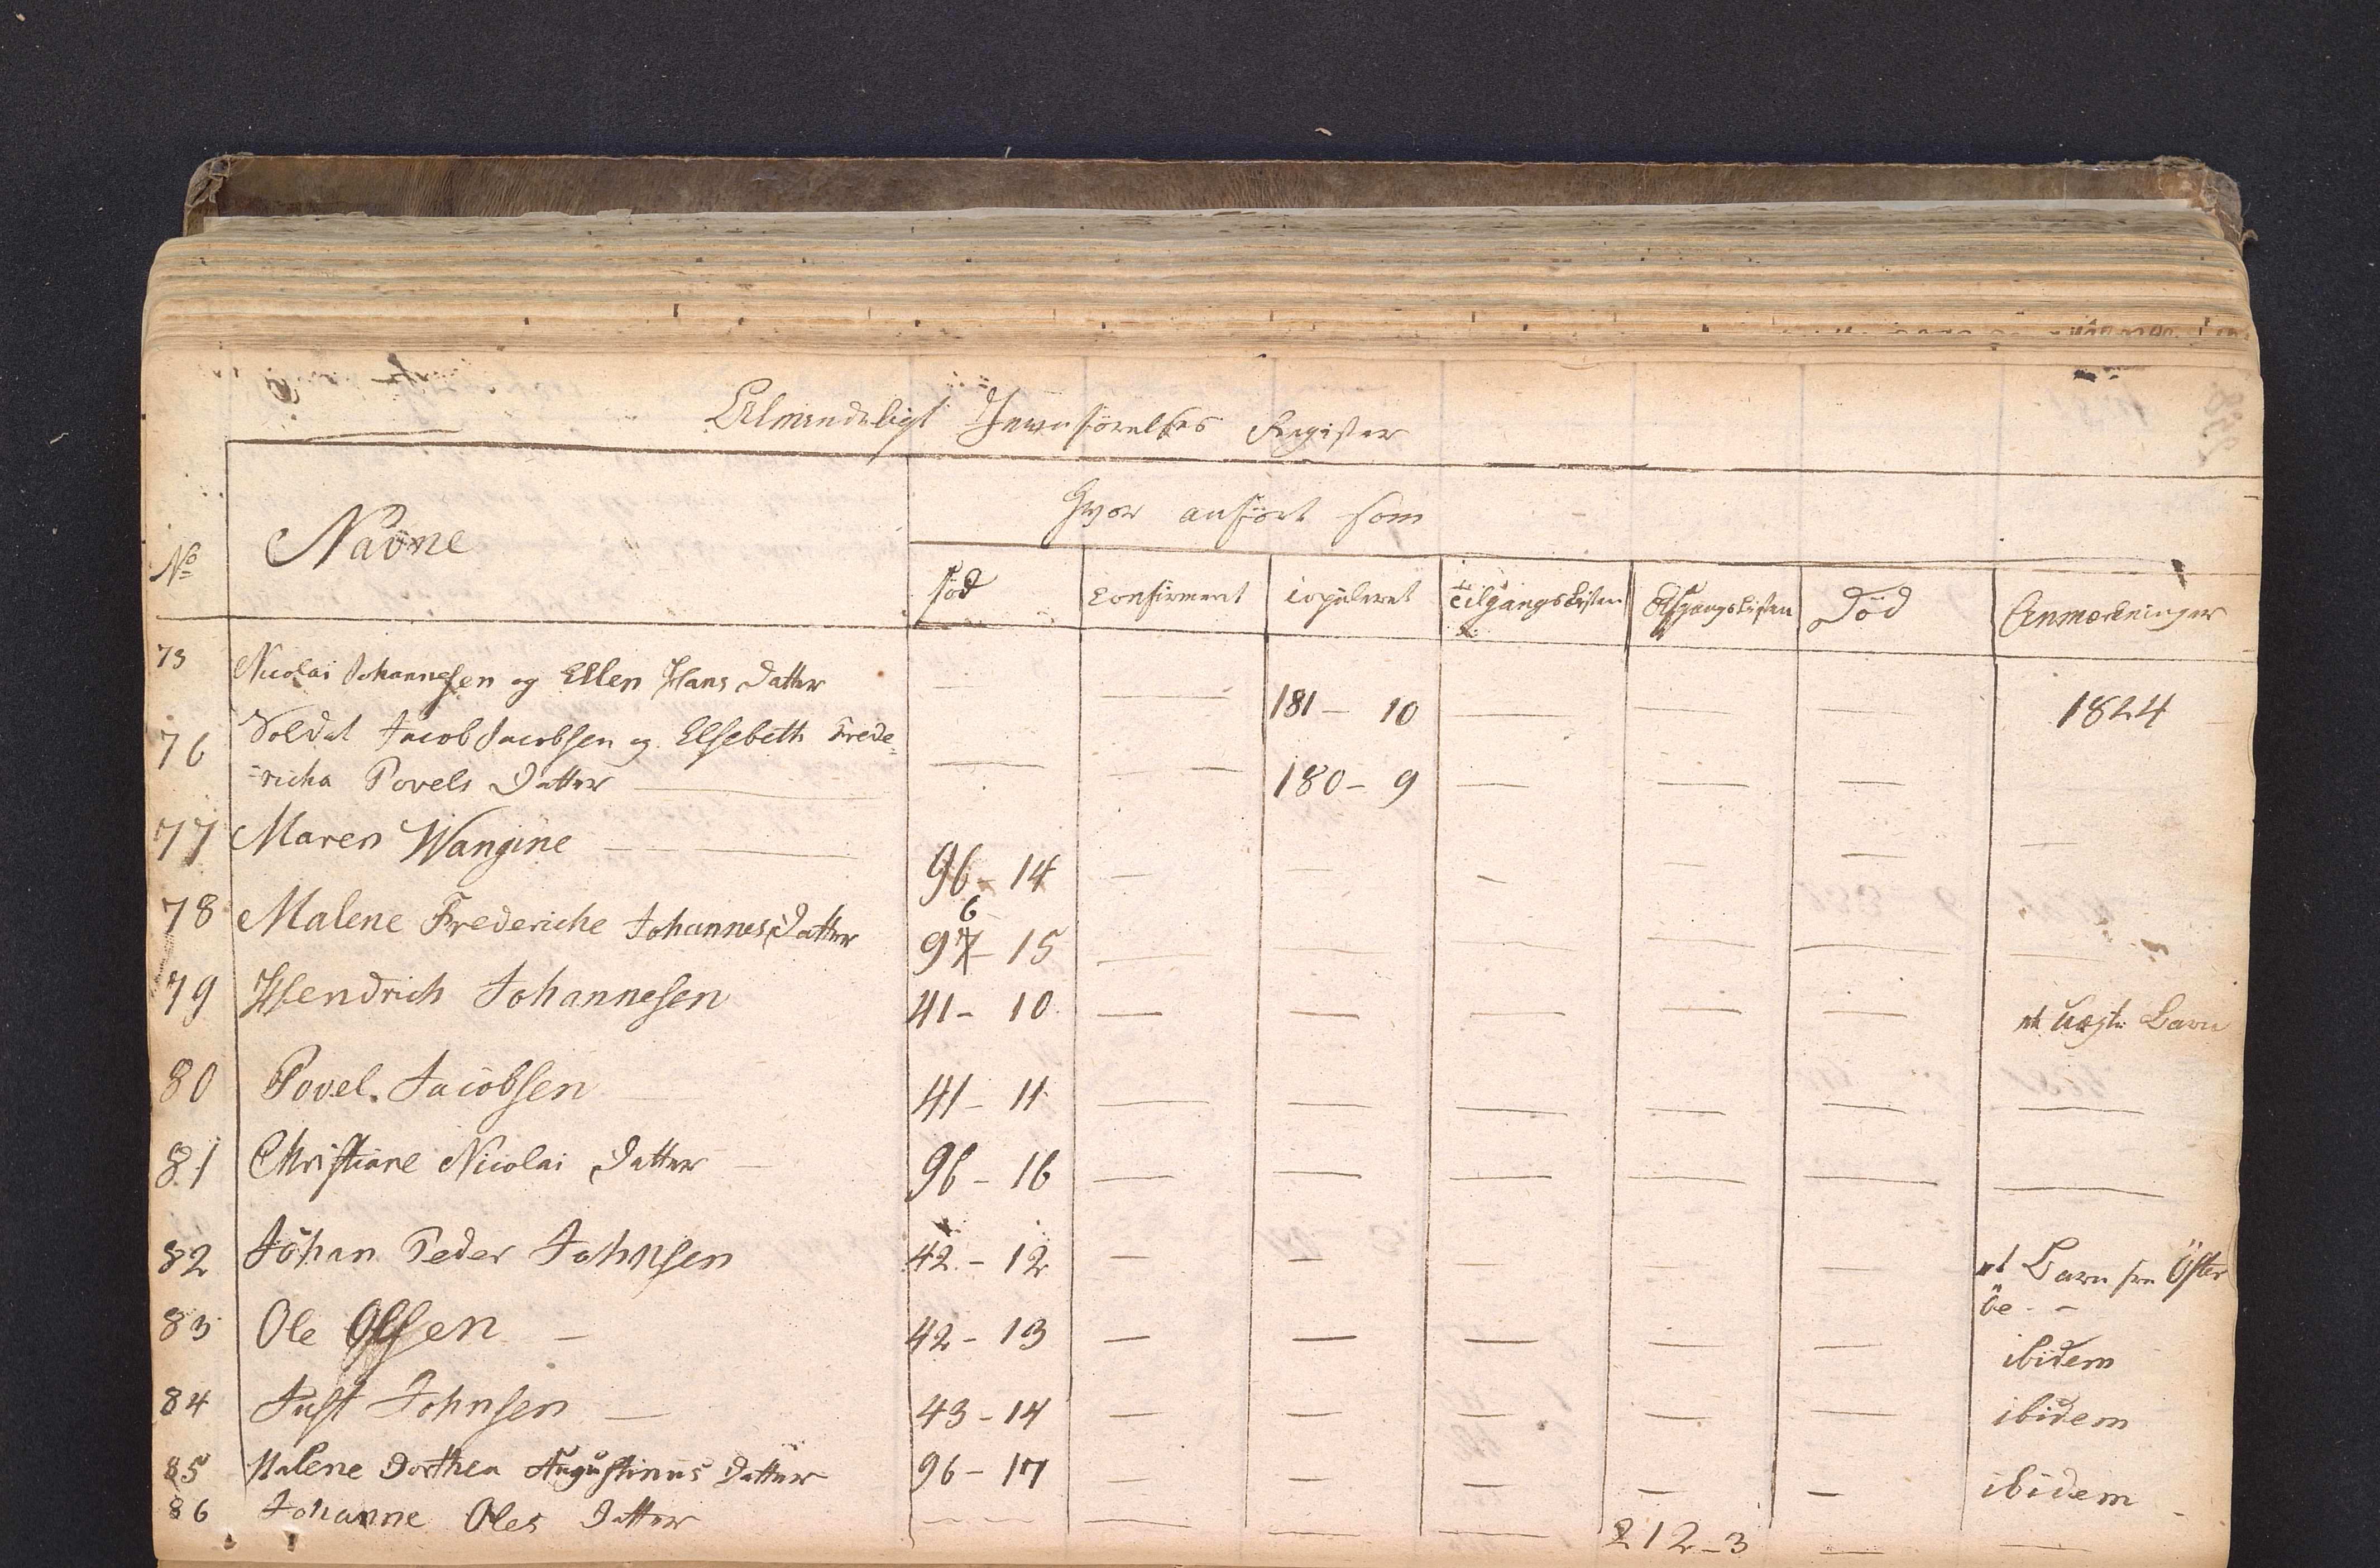 Almindeligt Jevnförelses Register
No Navne Hvor anfört som
föd Confirmert Copuleret tilgangslisten Afgangslisten Död Anmerkninger
75 Nicolai Johannesen og Ellen Hans Datter — — 181 — 10 — — — 1824
76 Soldat Jacob Jacobsen og Elsebeth Frede-
-richa Povels Datter — — — 180 — 9 — — —
77 Maren Wangine — 96 — 14 — — — — — —
78 Malene Frederiche Johannes Datter 97 — 15 — — — — —
6
79 Hendrich Johannesen 41 — 10 — — — — — et uægte Barn
80 Povel Jacobsen 41 — 11 — — — — — —
81 Christiane Nicolai Datter 96 — 16 — — — — — —
82 Johan Peder Johnsen 42 — 12 — — — — — et Barn fra Öster
öe —
83 Ole Olsen — 42 — 13 — — — — — ibidem
84 Just Johnsen — 43 — 14 — — — — — ibidem
85 Malene Dorthea Augustinus Datter 96 — 17 — — — — — ibidem
86 Johanne Oles Datter — — — — — 212 — 3 — —